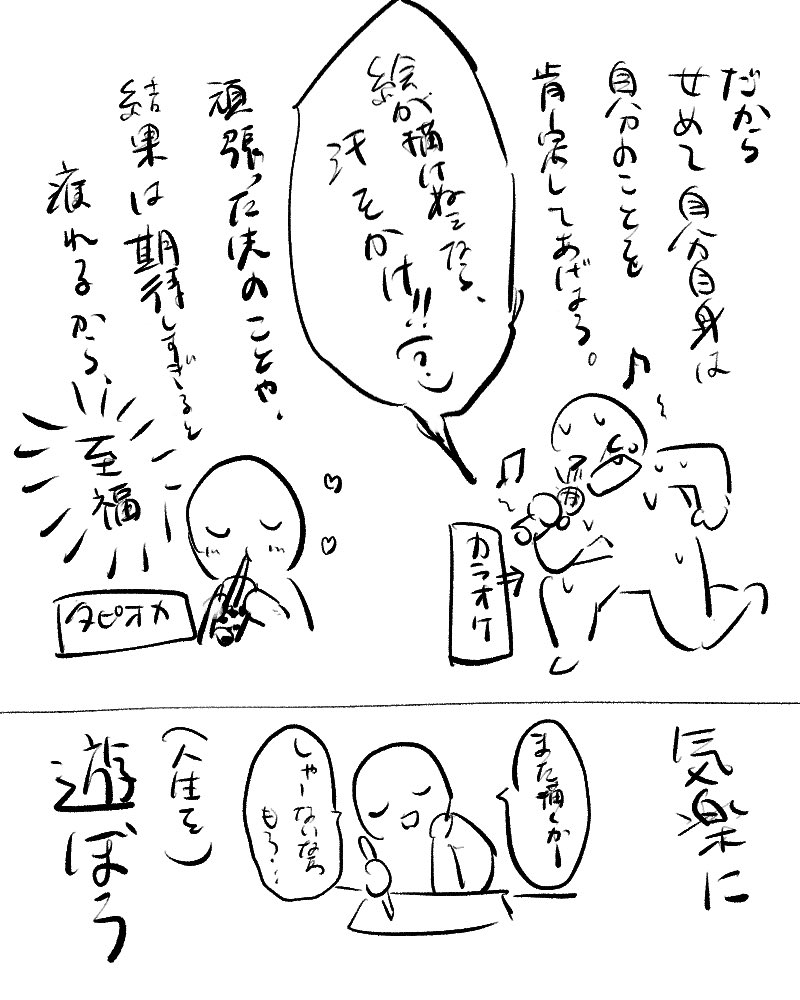 だから
せめて自分自身は
自分のことを
肯定してあげよう。
絵が描けねぇなら、
汗をかけ!!
頑張った先のことや、
結果は期待しすぎると
疲れるから、
カラオケ
至福
タピオカ
気楽に
また描くかー
しゃーないなぁ
もう…
(人生を)
遊ぼう